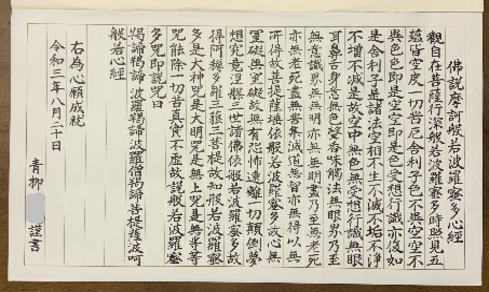 佛説摩訶般若波羅蜜多心經
觀自在菩薩行深般若波羅蜜多時照見五
蘊皆空度一切苦厄舎利子色不異空空不
異色色即是空空即是色受想行識亦復如
是舎利子是諸法空相不生不滅不垢不淨
不増不減是故空中無色無受想行識無眼
耳鼻舌身意無色聲香味觸法無眼界乃至
無意識界無無明亦無無明盡乃至無老死
亦無老死盡無苦集滅道無智亦無得以無
所得故菩提薩埵依般若波羅蜜多故心無
罣礙無罣礙故無有恐怖遠離一切顛倒夢
想究竟涅槃三世諸佛依般若波羅蜜多故
得阿耨多羅三藐三菩提故知般若波羅蜜
多是大神咒是大明咒是無上咒是無等等
咒能除一切苦真實不虚故説般若波羅蜜
多咒即説咒曰
羯諦羯諦 波羅羯諦 波羅僧羯諦 菩提薩婆訶
般若心經
右為心願成就
令和三年八月二十日
青柳 謹書